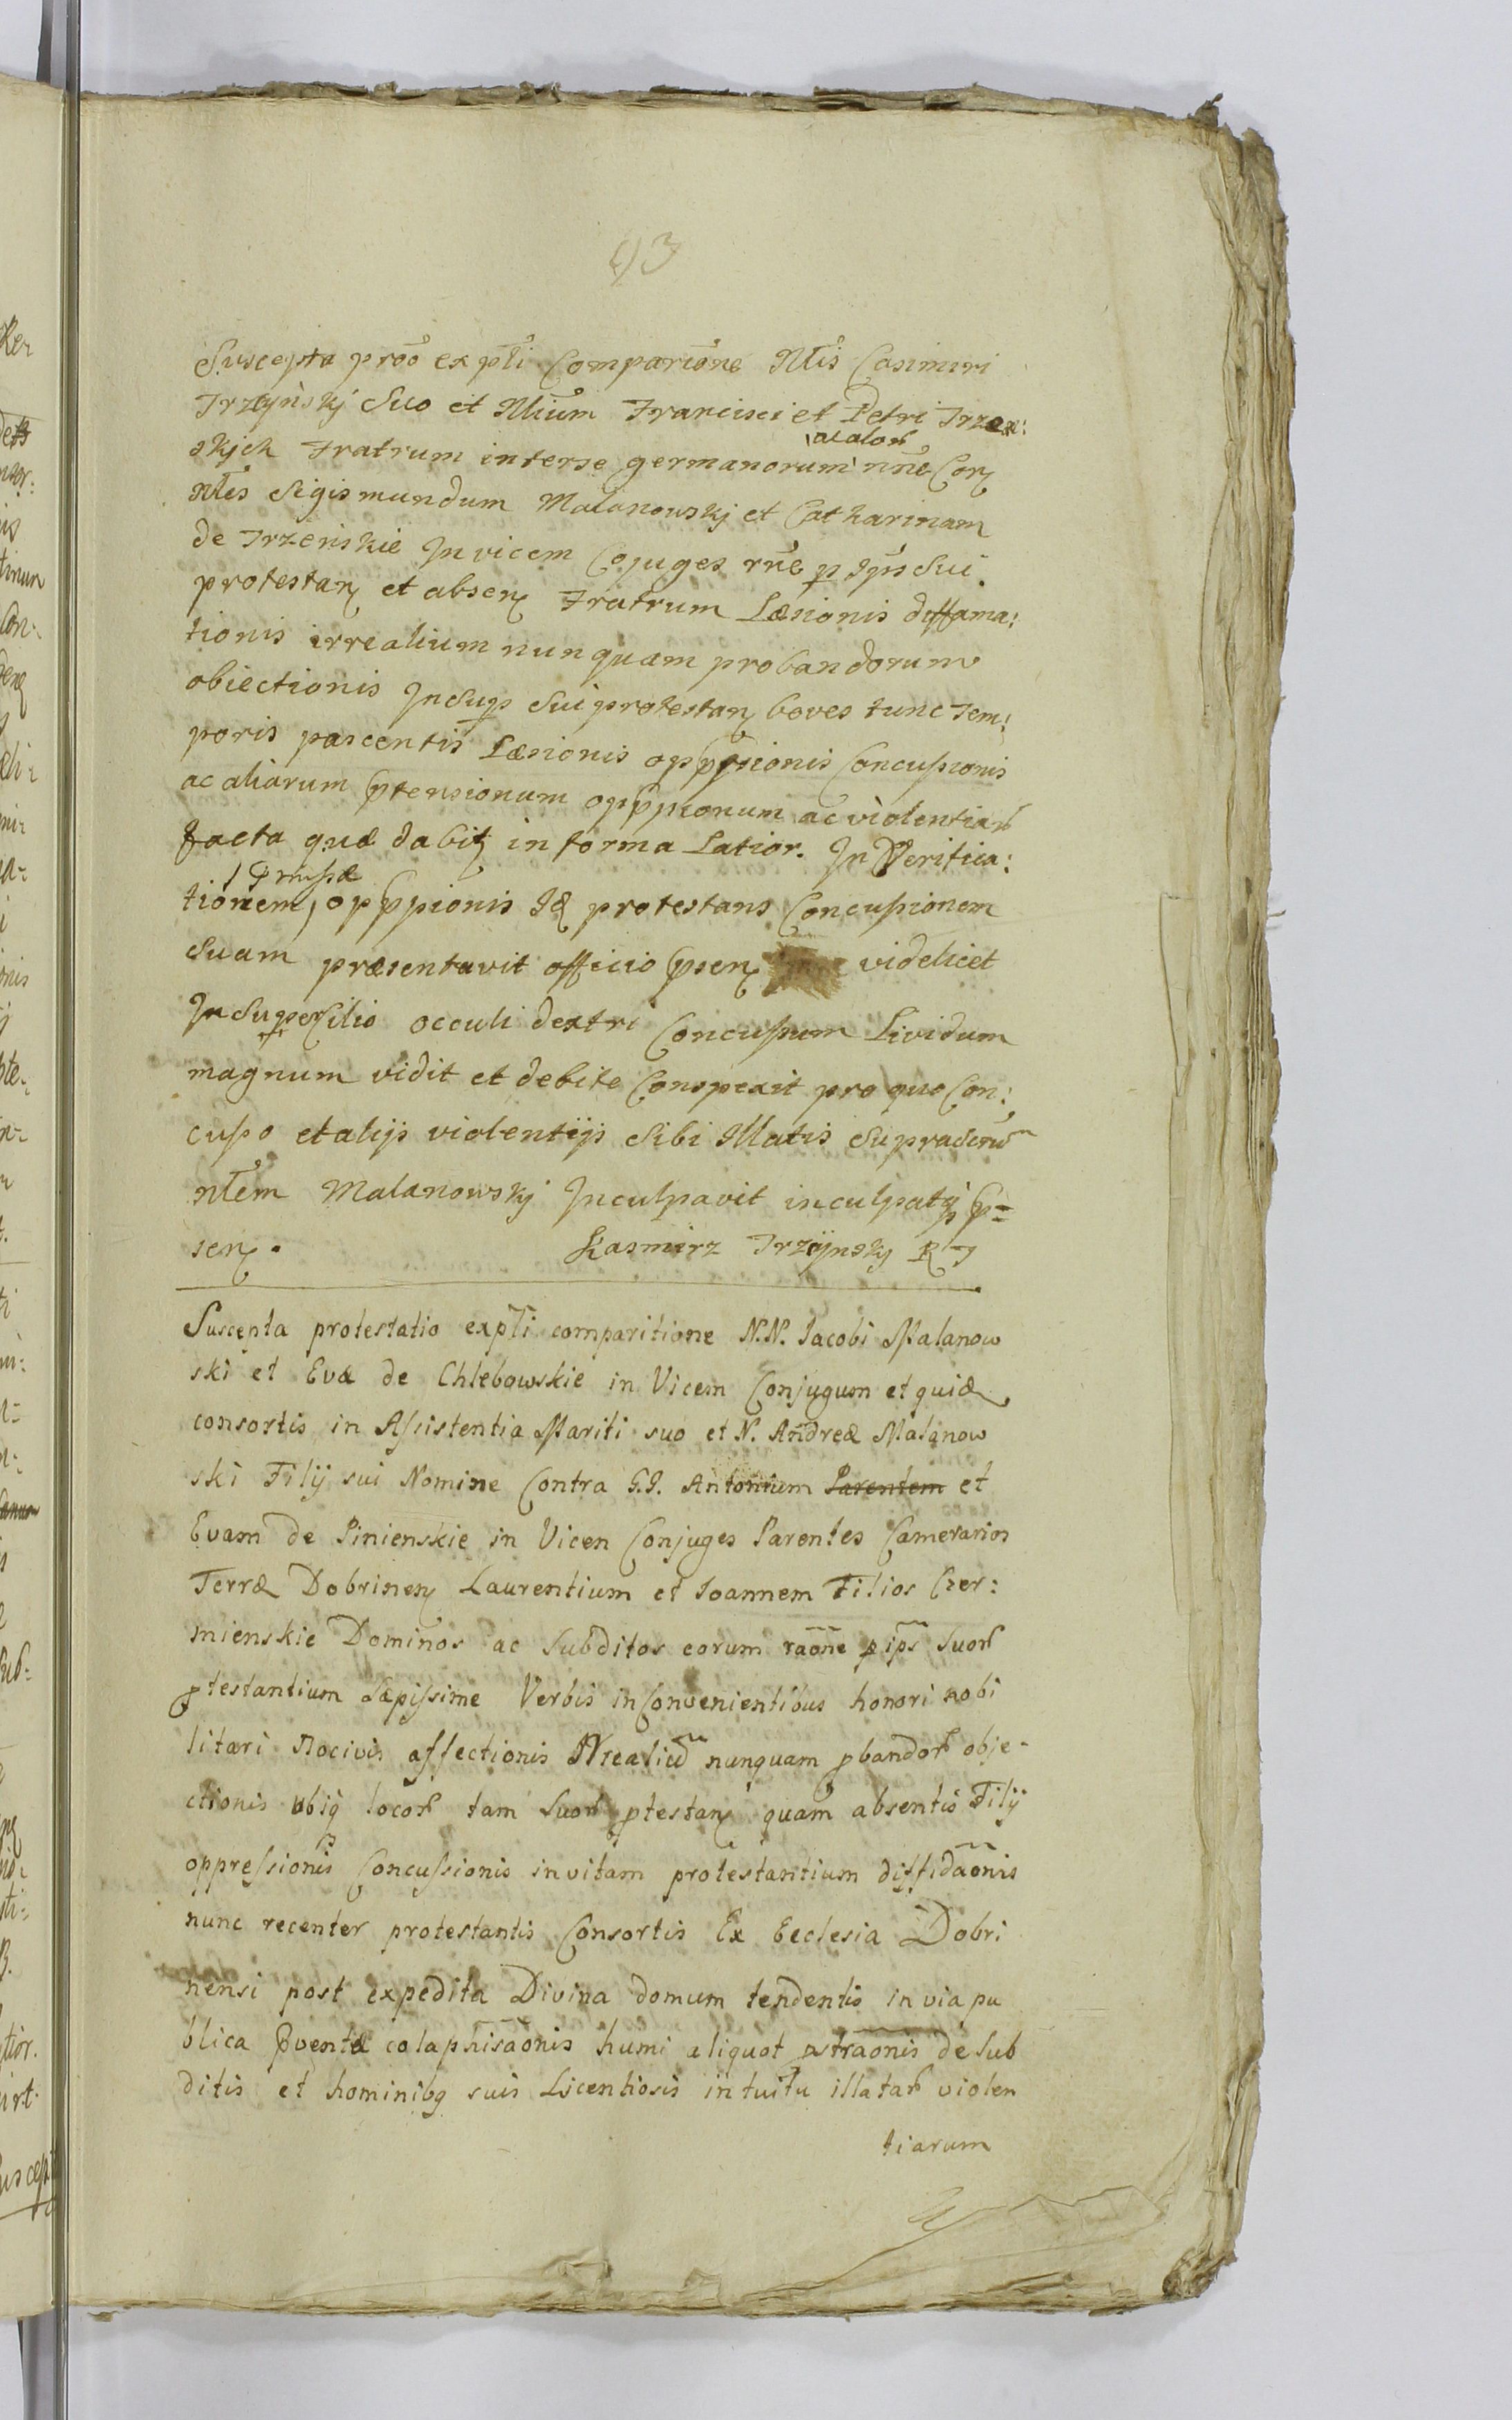 93
Suscepta proõ ex p̃ti Compariõne Ntis Casimiri
Trzcÿnskj Suo et Ntium Francisci et Petri Trzen:
skjch Fratrum interse germanorum ac alor nñe Con
Ntes Sigismundum Malanowskj et Catharinam
de Trzenskie Invicem Cojuges rñe p Ips Sui
protestan et absen Fratrum Læsionis diffama:
tionis irrealium nunquam probandorum
obiectionis Insup Sui protestan boves tunc Tem:
poris pascentis Læsionis Concussionis
ac aliarum ptensionum ac violentiar
facta quæ dabit in forma Latior. In Verifica:
tionem, protestans Concussionem
Suam præsentavit officio psen videlicet
In Supercilio occuli dextri Concussum Lividum
magnum vidit et debite Conspexit pro quo Con:
cusso et alijs violentijs Sibi Illatis Supradictũ
ntem Malanowskj Inculpavit inculpatq p=
sen. Kasmirz Trzÿnsky R T
Suscepta protestatio ex p̃ti comparitione N.N. Iacobi Malanow
ski et Evæ de Chlebowskie in Vicem Conjugum et quidẽ
consortis in Assistentia Mariti suo et N. Andreæ Malanow
ski Filij sui Nomine Contra G.G. Antonium Parentem et
Evam de Pinienskie in Vicen Conjuges Parentes Camerarios
Terræ Dobrinen Laurentium et Ioannem Filios Czer:
mienskie Dominos ac Subditos eorum raõne p ips Suor
ptestantium sæpissime Verbis inConvenientibus honori nobi
litari Nocivis affectionis IRrealiũ nunquam pbandor obje-
ctionis ubiq locor tam Suor ptestan quam absentis Filij
oppressionis Concussionis in vitam protestantium diffidaõnis
nunc recenter protestantis Consortis Ex Ecclesia Dobri
nensi post expedita Divina domum tendentis in via pu
blica pventæ colaphisaõnis humi aliquot pstraõnis de Sub
ditis et hominibq suis Licentiosis intuitu illatar violen
tiarum